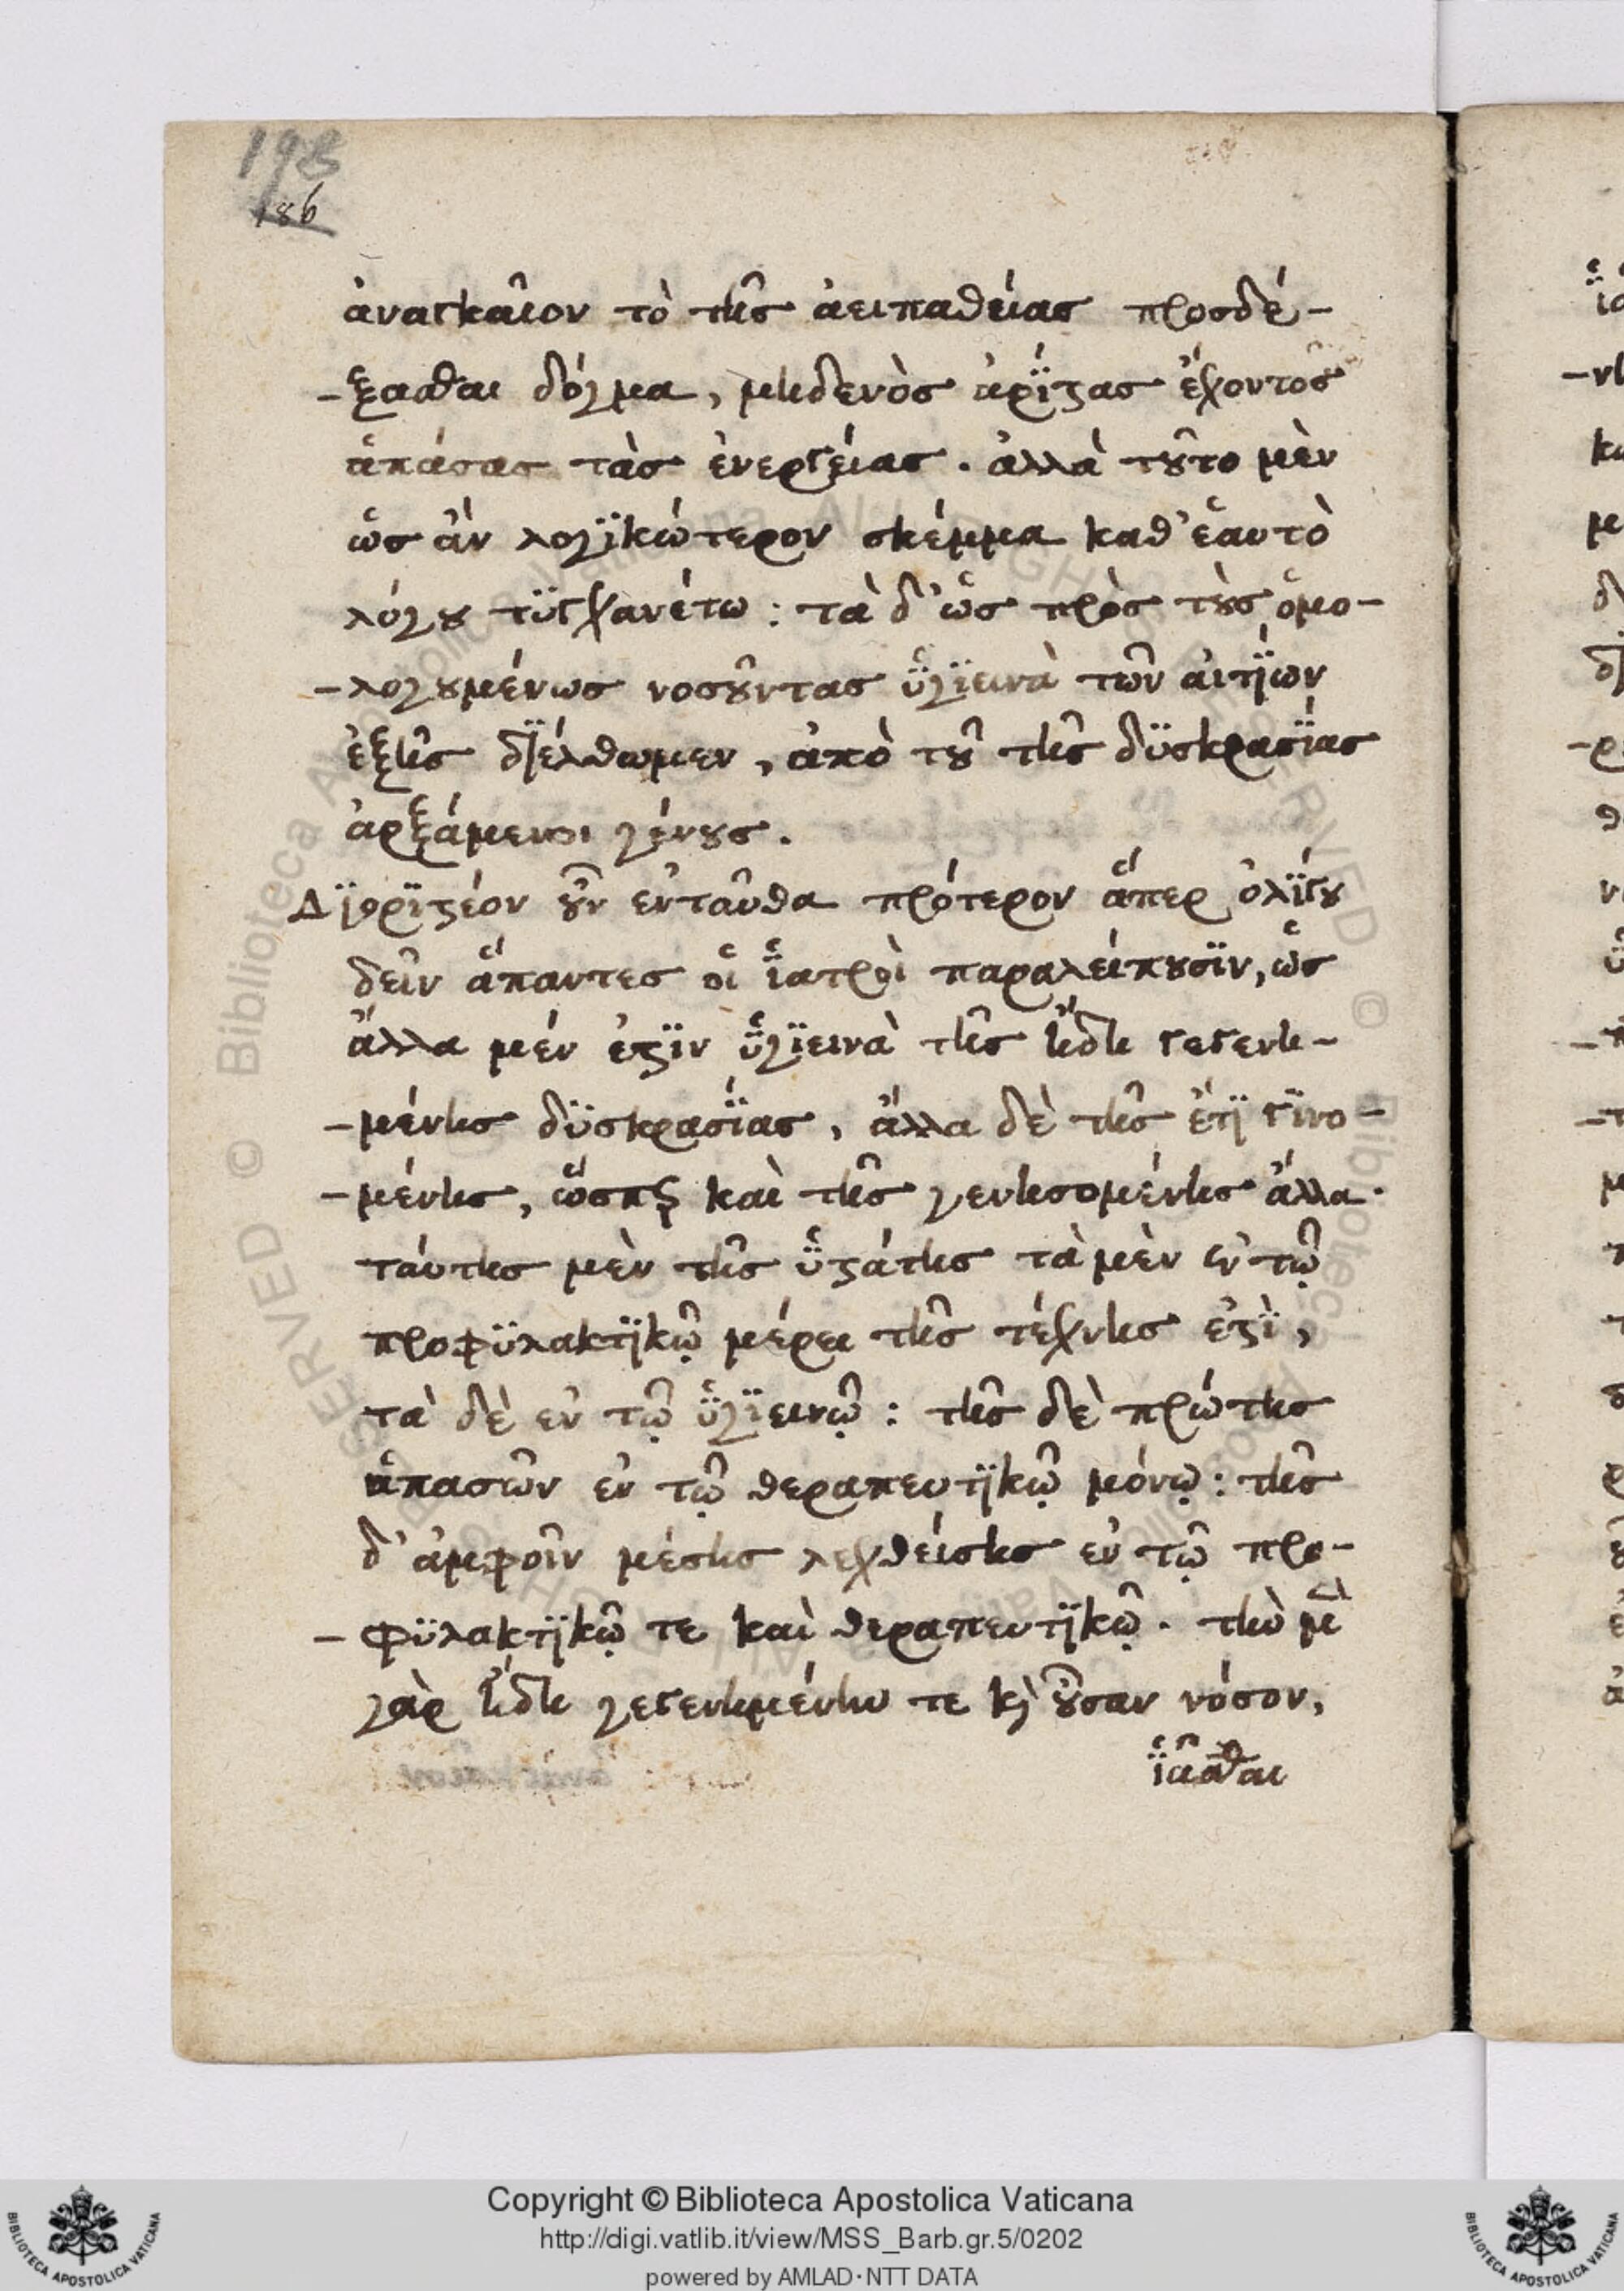 193
186
ἀναγκαῖον τὸ τῆς ἀειπαθείας προσδέ-
-ξασθαι δόγμα, μηδενὸς ἀρίστας ἔχοντος
ἁπάσας τὰς ἐνεργείας. ἀλλὰ τοῦτο μὲν
ὡς ἂν λογϊκώτερον σκέμμα καθ' ἑαυτὸ
λόγου τϋγχανέτω: τὰ δ' ὡς πρὸς τοὺς ὁμο-
-λογουμένως νοσοῦντας ὑγϊεινὰ τῶν αἰτΐων
ἑξῆς διέλθωμεν, ἀπὸ τοῦ τῆς δϋσκρασΐας
ἀρξάμενοι γένους.
Διορϊστέον οὖν ἐνταῦθα πρότερον ἅπερ ὀλΐγου
δεῖν ἅπαντες οἱ ἱατροὶ παραλείπουσϊν, ὡς
ἄλλα μέν ἐστϊν ὑγϊεινὰ τῆς ἤδη γεγενη-
-μένης δϋσκρασΐας, ἄλλα δὲ τῆς ἔτϊ γϊνο-
-μένης, ὥσπερ καὶ τῆς γενησομένης ἄλλα·
ταύτης μὲν τῆς ὑστάτης τὰ μὲν ἐν τῷ
προφϋλακτϊκῷ μέρει τῆς τέχνης ἐστῒ,
τὰ δὲ ἐν τῷ ὑγϊεινῷ: τῆς δὲ πρώτης
ἁπασῶν ἐν τῷ θεραπευτϊκῷ μόνῳ: τῆς
δ' ἀμφοῖν μέσης λεχθείσης ἐν τῷ προ-
-φϋλακτϊκῷ τε καὶ θεραπευτϊκῷ. τὴν μὲν
γὰρ ἤδη γεγενημένην τε κὶ οὖσαν νόσον,
ἱᾶσθαι
Copyright © Biblioteca Apostolica Vaticana
http://digi.vatlib.it/view/MSS_Barb.gr.5/0202
powered by AMLAD·NTT DATA